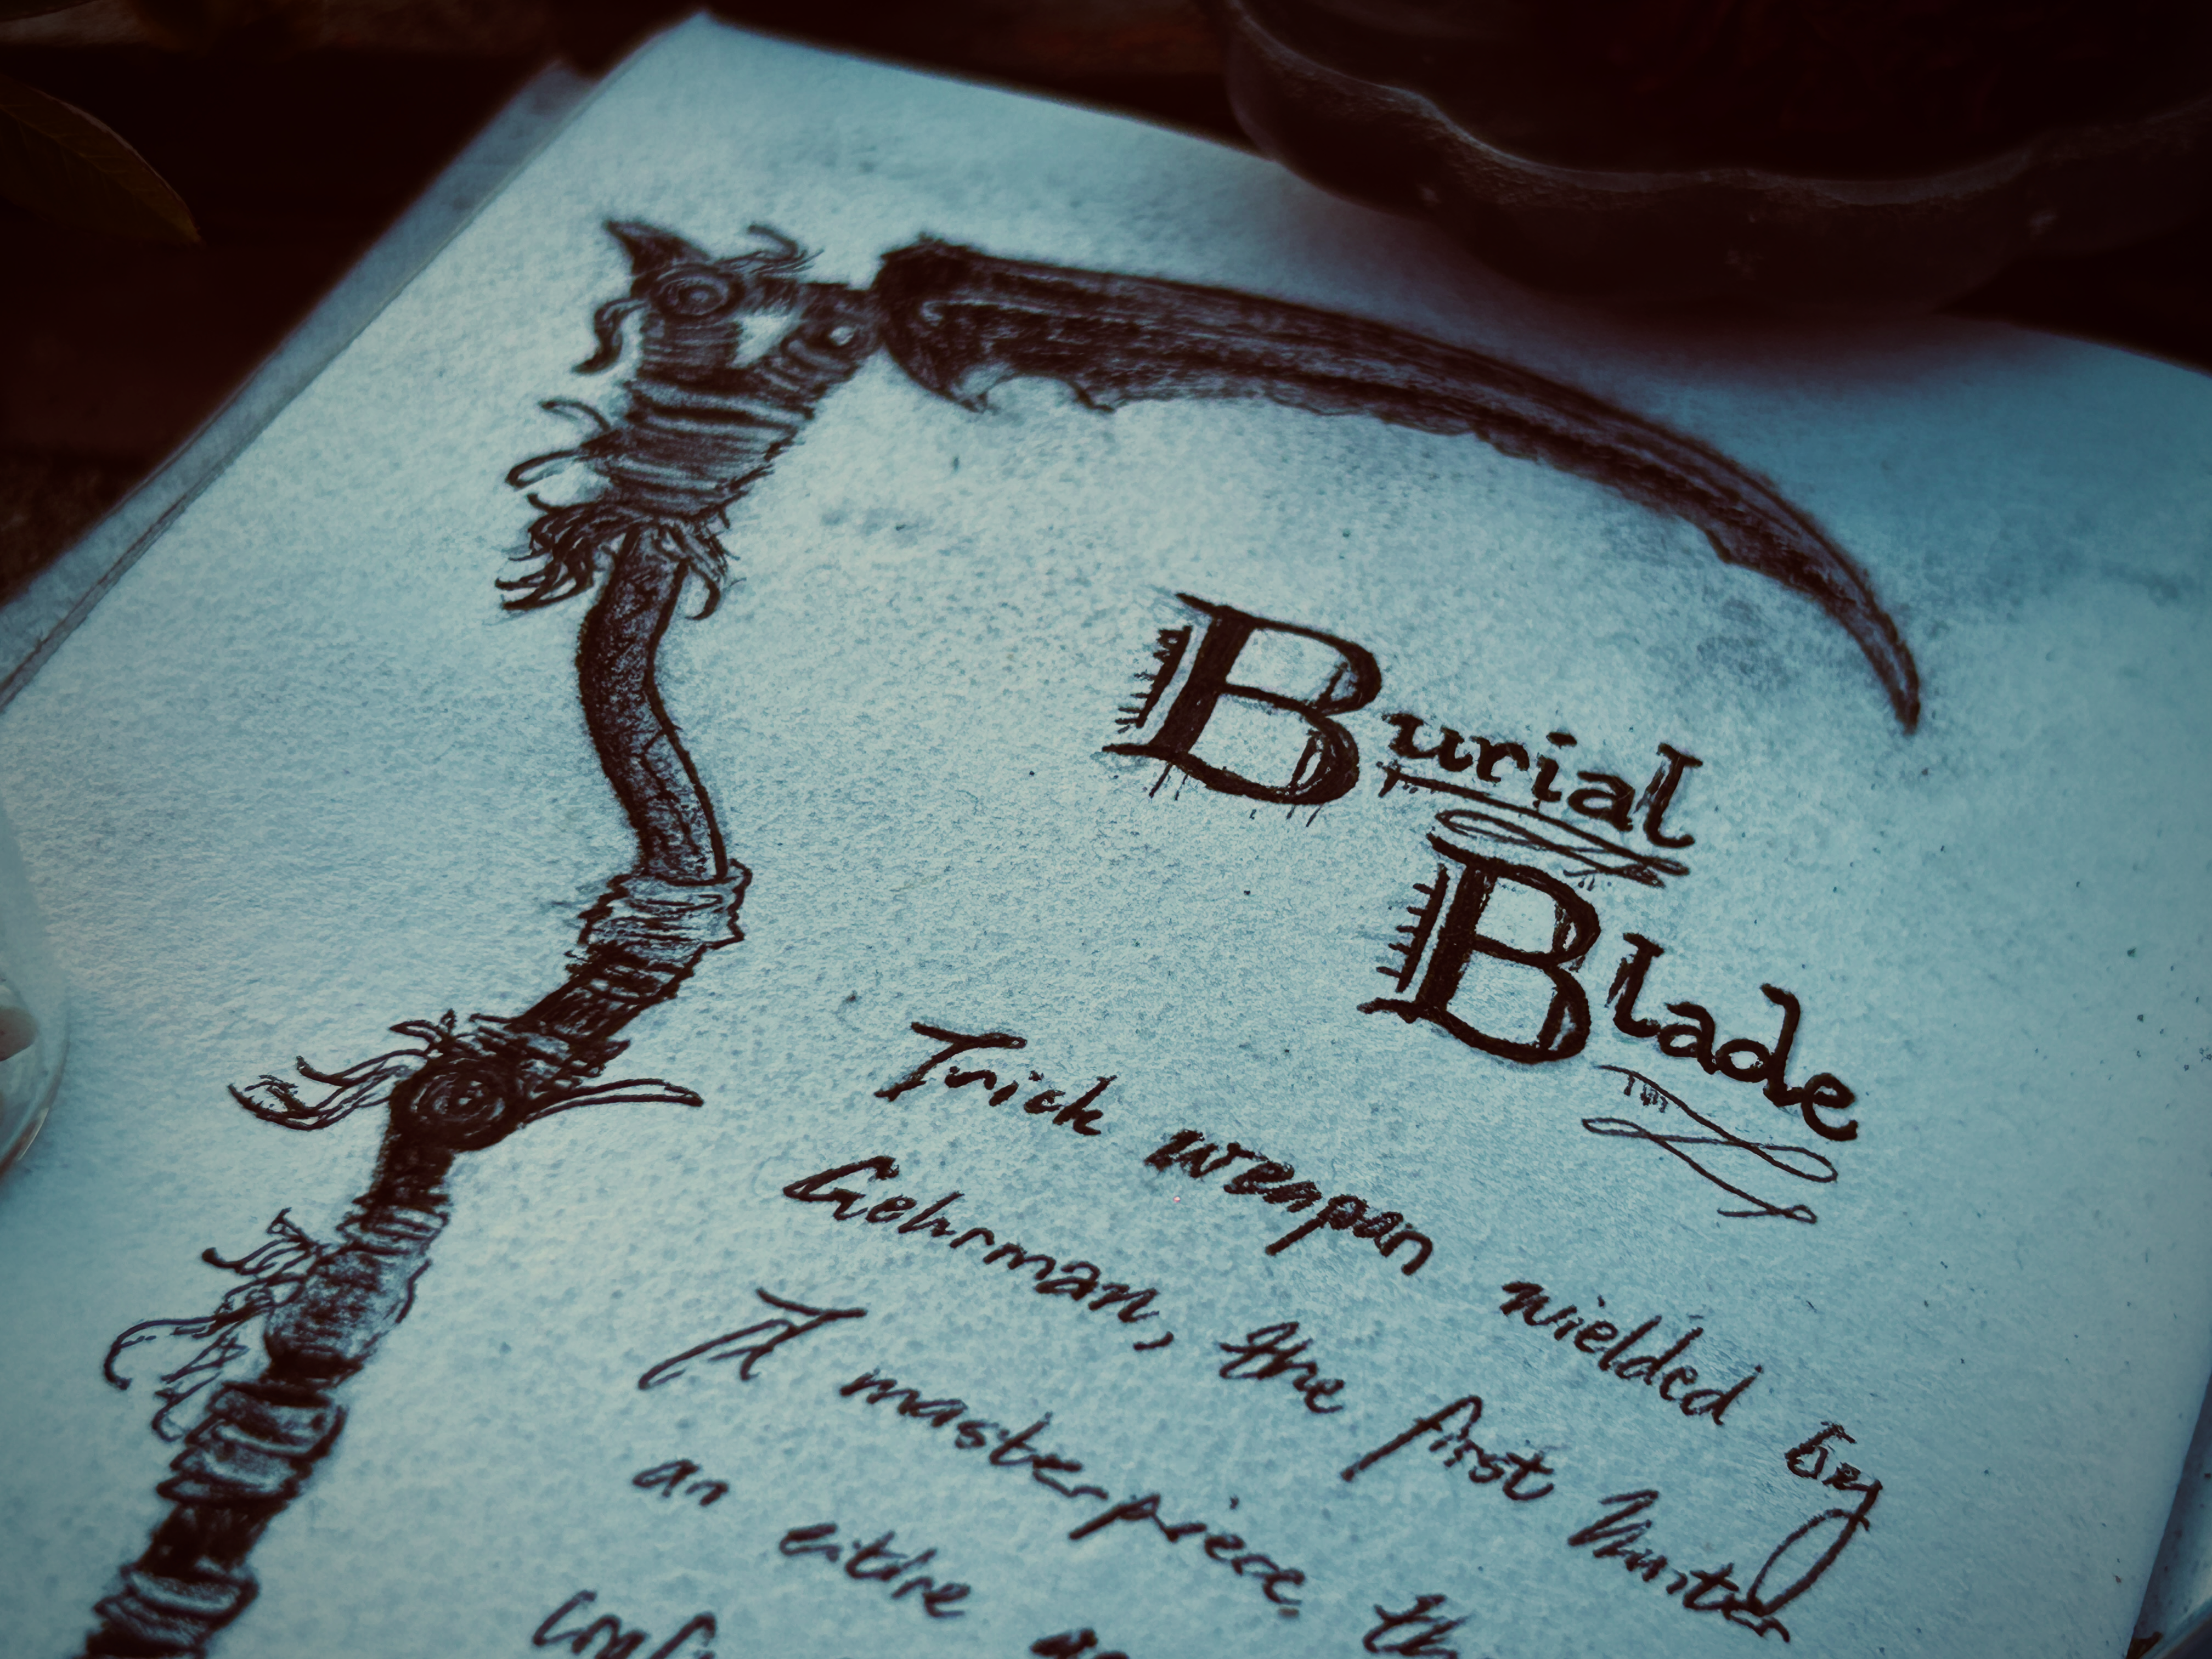 Burial
Blade
Trick weapon wielded by
Gehrman, the first hunter
A masterpiece th
an entire